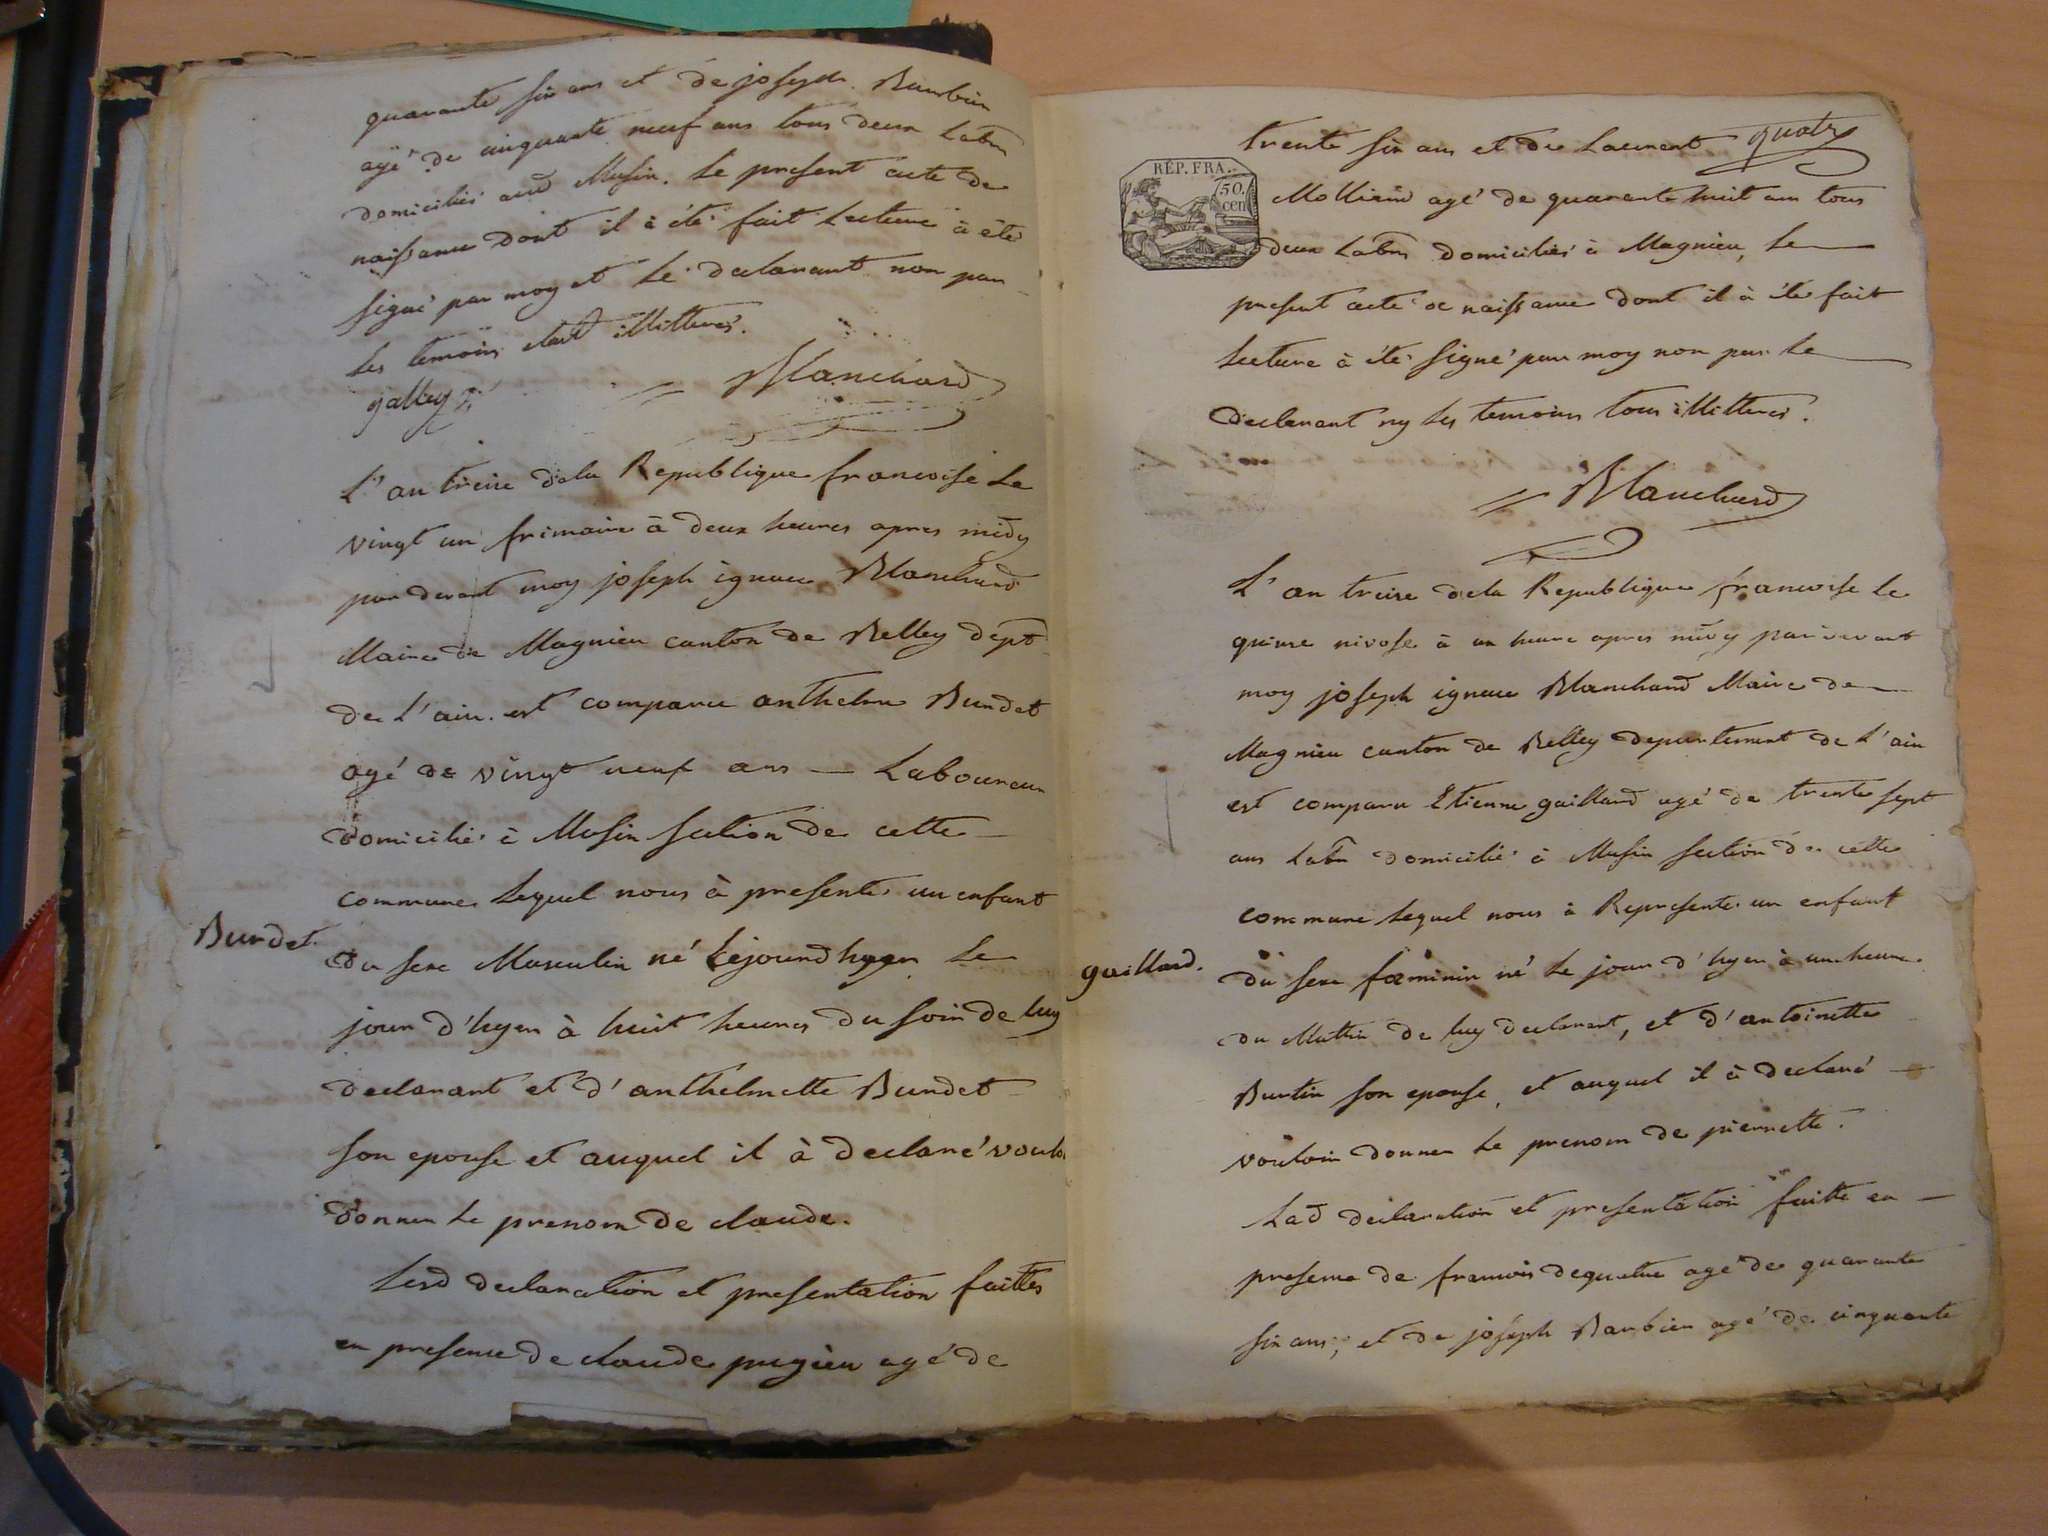 quarante six ans et de joseph Barbier
agé de cinquante neuf ans tous deux Labrs
domiciliés aud Musin. Le present acte de
naissance dont il à été fait Lecture à été
signé par moy et Le declarant non pas
Les temoins étant illitterés.
galley
Blanchard
L'an treize dela Republique francoise Le
vingt un frimaire à deux heures apres midy
par devant moy joseph ignace Blanchard
Maire de Magnieu canton de Belley dépt
de L'ain. est comparu anthelme Burdet
agé de vingt neuf ans — Laboureur
domicilié à Musin section de cette
commune Lequel nous à presenté un enfant
Burdet.
du sexe Masculin né Lejourdhyer Le
jour d'hyer à huit heures du soir de luy
declarant et d'anthelmette Burdet
son epouse et auquel il à declaré vouloi
donner Le prenom de claude.
Lesd declaration et presentation faittes
en presence de claude pugieu agé de
trente six ans et de Laurent
quatre
RÉP. FRA.
50.
cen
Molliand agé de quarante huit ans tous
deux Labrs domiciliés à Magnieu, Le
present acte de naissance dont il à été fait
Lecture à été signé par moy non par Le
declarant ny Les temoins tous illitterés.
Blanchard
L'an treize dela Republique francoise Le
quinze nivose à un heure apres midy pardevant
moy joseph ignace Blanchard Maire de
Magnieu canton de Belley departement de L'ain
est comparu Etienne gaillard agé de trente sept
ans Labr domicilié à Musin section de cette
commune Lequel nous à Representé un enfant
gaillard.
du sexe fæminin né Le jour d'hyer à un heure
du Mattin de luy declarant, et d'antoinette
Burtin son epouse, et auquel il à declaré
vouloir donner Le prenom de pierrette.
Lad declaration et presentation faitte en
presence de francois dequatre agé de quarante
six ans, et de joseph Barbier agé de cinquante